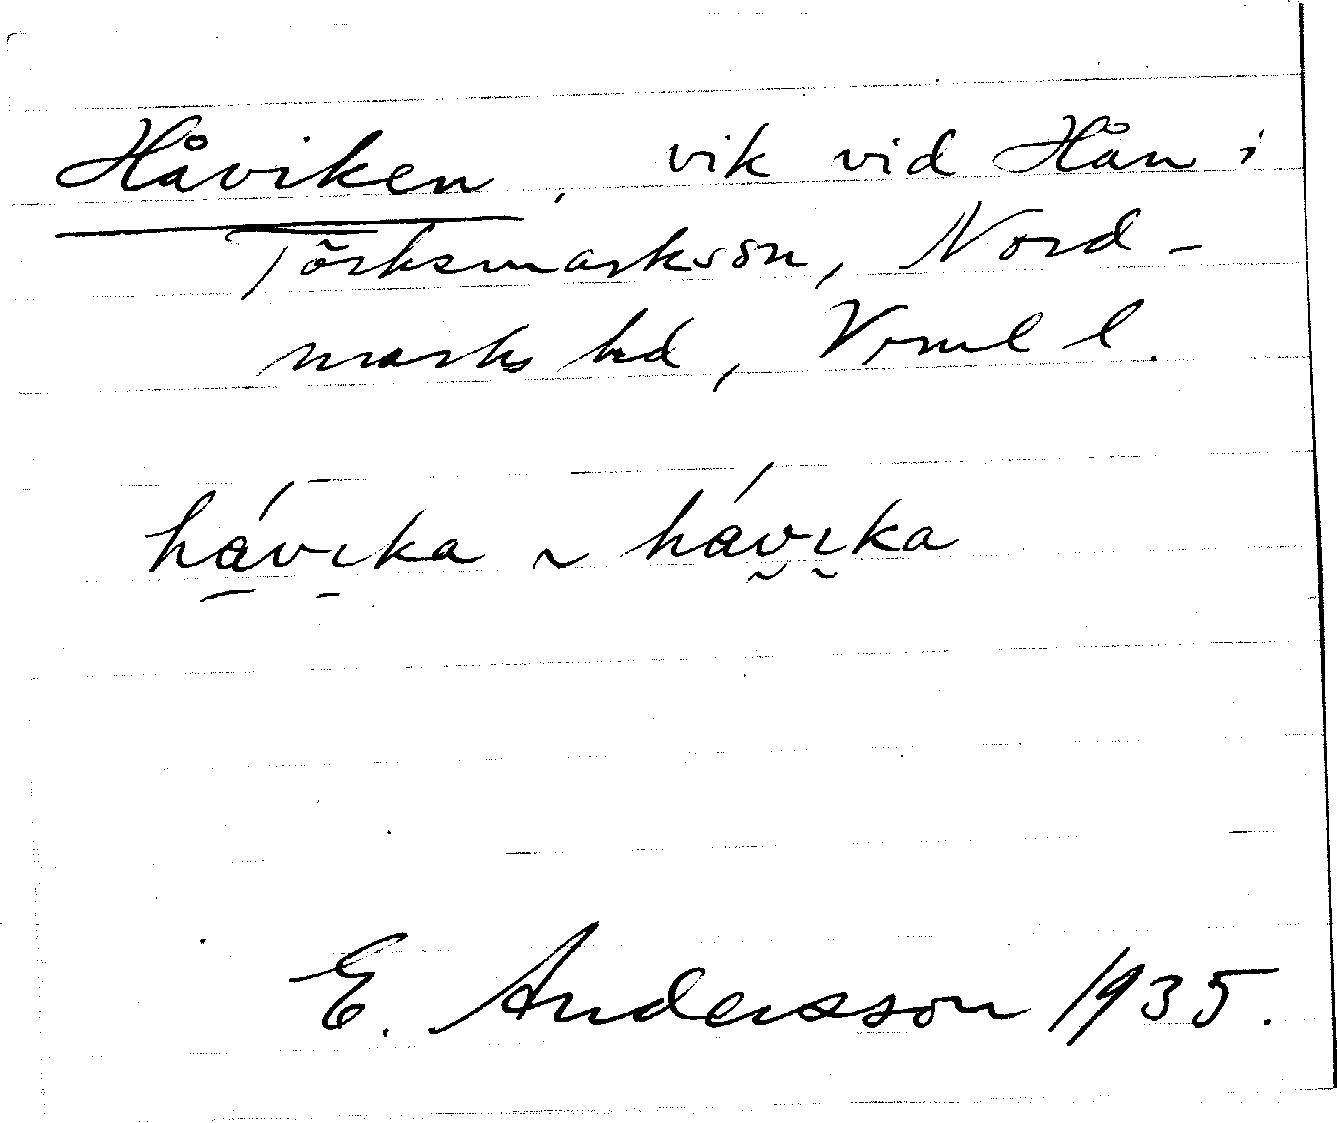 Håviken, vik vid Hån i
Törksmarks sn, Nord-
marks hd, Vrml l.
hávıka ~ hávıka
E. Andersson 1935.